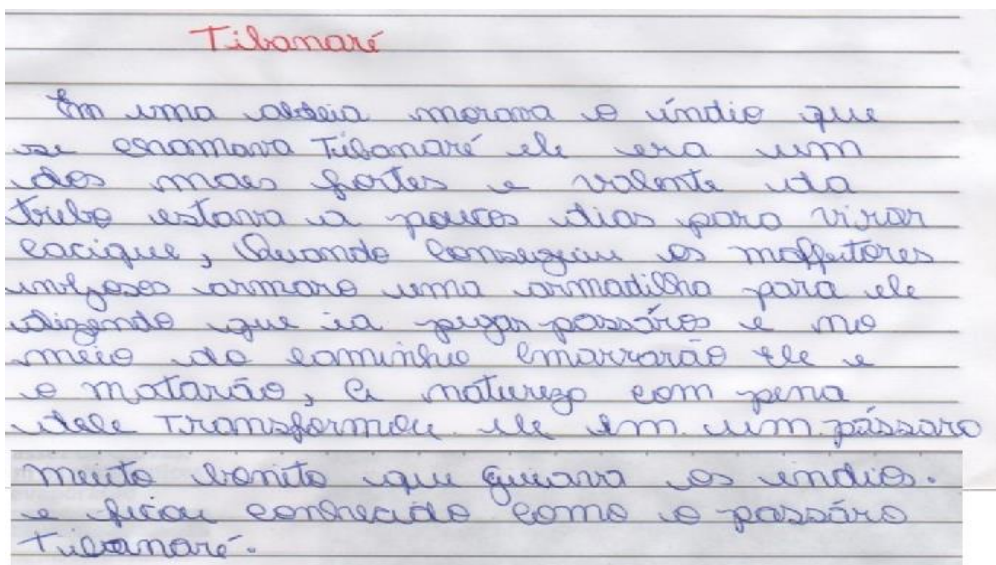 Tibanaré
Em uma aldeia morava o índio que
se chamava Tibanaré ele era um
dos mais fortes e valente da
tribo estava a poucos dias para virar
cacique, Quando conseguiu os malfeitores
invejosos armaro uma armadilha para ele
dizendo que ia pegar passáros e no
meio do caminho emarrarão ele e
o matarão, a natureza com pena
dele Transformou ele em um pássaro
muito bonito que guiava os indios.
e ficou conhecido como o passáro
Tibanaré.